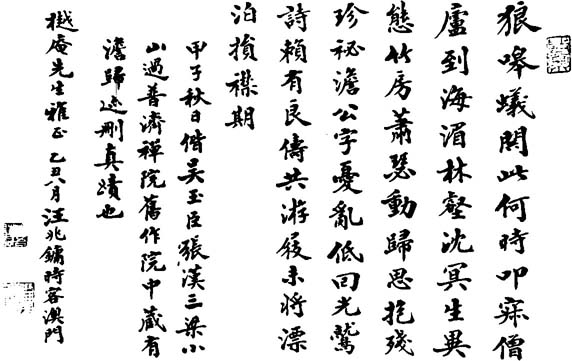 狼嗥蟻鬥此何時叩寐僧
廬到海湄林壑沈冥生異
態竹房蕭瑟動歸思抱殘
珍祕澹公字憂亂低回光鷲
詩賴有良儔共游屐未將漂
泊損襟期
甲子秋日偕吳玉臣張漢三梁小
山過普濟禪院舊作院中藏有
澹歸迹刪真蹟也
樾庵先生雅正 乙丑八月汪兆鏞時客澳門